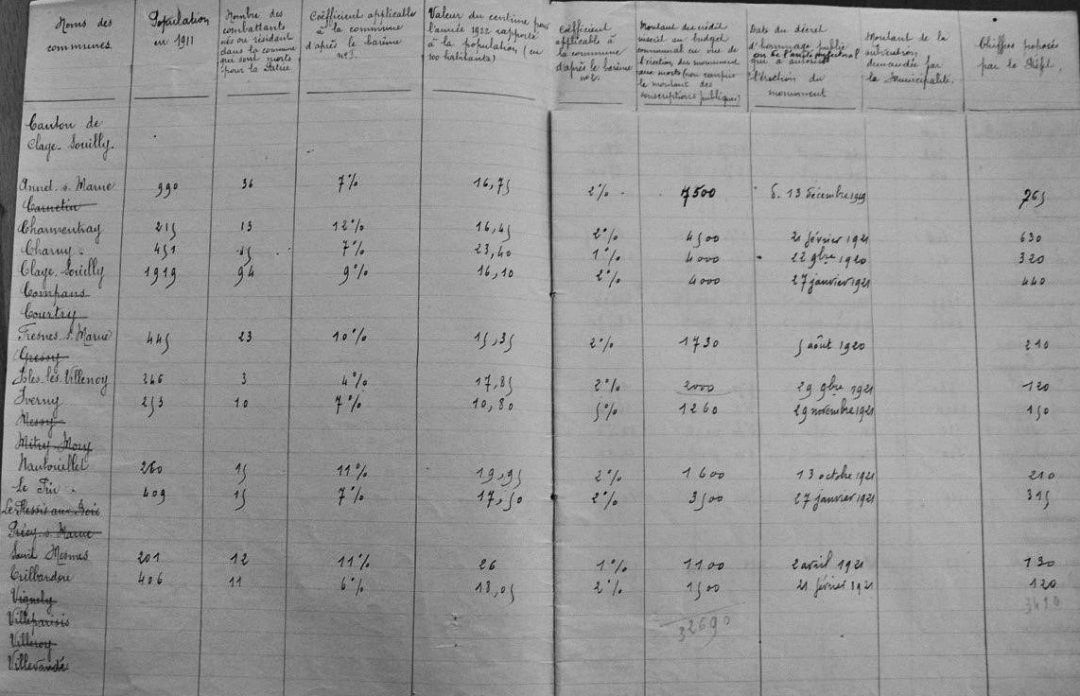 Noms des communes. Population en 1911 Nombre des combattants nés ou résidant dans la commune qui sont morts pour la Patrie Coëfficient applicable à la commune d'après le barème n°1. Valeur du centime pour l'année 1922 rapporté à la population (en 100 habitants) Coëfficient applicable à la commune d'après le barème n°2. Montant du crédit inscrit au budget communal en vue de l'érection du monument aux morts (non compris le montant des souscriptions publiques) Date du décret d'hommage public qui a autorisé l'érection du monument Montant de la subvention demandée par la Municipalité. Chiffres proposés par le Préfet.
Canton de
Claye-Souilly.
Annet s. Marne 990 36 7% 16,75 2% 7500 13 décembre 1919 765
Carnetin
Charmentray 215 13 12% 16,45 2% 4500 21 février 1921 630
Charny 451 15 7% 23,40 1% 4000 22 9bre 1920 320
Claye-Souilly 1919 94 9% 16,10 2% 4000 27 janvier 1921 440
Compans
Courtry
Fresnes s. Marne 445 23 10% 15,35 2% 1730 5 août 1920 210
Gressy
Isles-les-Villenoy 246 3 4% 17,85 2% 2000 29 9bre 1921 120
Iverny 253 10 7% 10,80 5% 1260 29 novembre 1921 150
Messy
Mitry-Mory
Nantouillet 260 15 11% 19,95 2% 1600 13 octobre 1921 210
Le Pin 409 15 7% 17,50 2% 3500 27 janvier 1921 315
Le Plessis aux Bois
Précy s. Marne
Saint Mesmes 201 12 11% 26 1% 1100 2 avril 1921 130
Trilbardou 406 11 6% 18,05 2% 1500 21 février 1921 120
Vignely 3490
Villeparisis 32690
Villeroy
Villevaudé